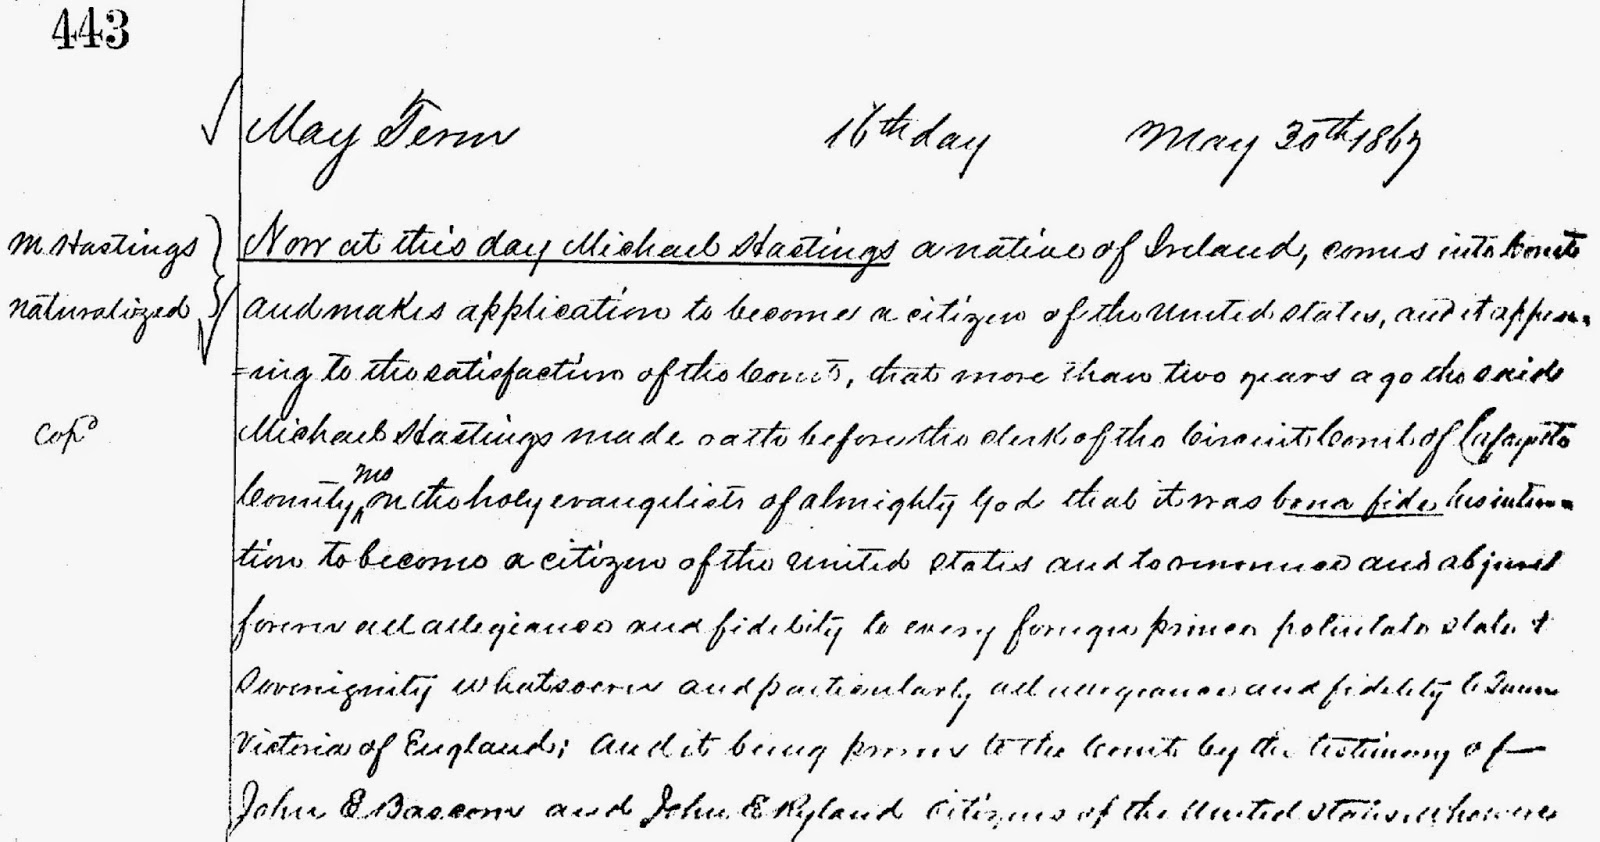 443
May Term 16th day May 30th 1867
M Hastings
Naturalized
Copd
Now at this day Michael Hastings a native of Ireland, comes into Court
and makes application to become a citizen of the United States, and it appear-
=ing to the satisfaction of the Court, that more than two years ago the said
Michael Hastings made oath before the clerk of the Circuit Court of Lafayette
County, Mo on the holy evangelists of almighty God that it was bona fide his inten-
tion to become a citizen of the United States and to renounce and abjure
forever all allegiance and fidelity to every foreign prince potentate state &
Sovereignity whatsoever and particularly all allegiance and fidelity to Queen
Victoria of England; And it being proven to the Court by the testimony of
John E Bascom and John E Ryland Citizens of the United States who were